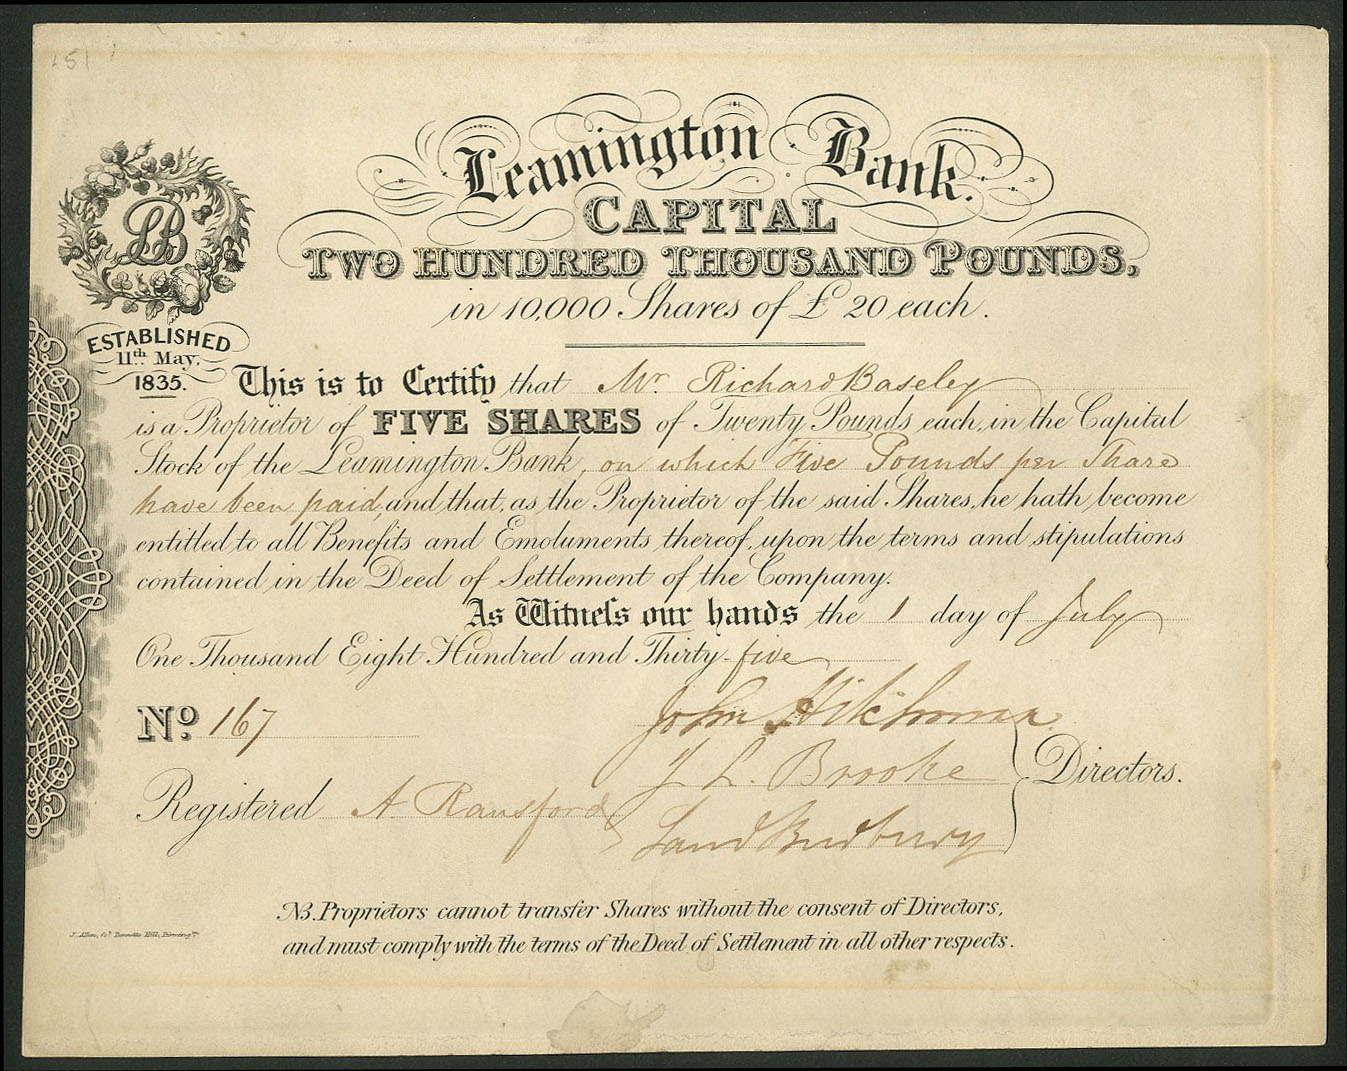 151
Leamington Bank.
CAPITAL
TWO HUNDRED THOUSAND POUNDS,
in 10,000 Shares of £ 20 each.
LB
ESTABLISHED
11th May,
1835.
This is to Certify that Mr. Richard Baseley
is a Proprietor of FIVE SHARES of Twenty Pounds each, in the Capital
Stock of the Leamington Bank, on which Five Pounds per Share
have been paid, and that, as the Proprietor of the said Shares, he hath become
entitled to all Benefits and Emoluments thereof, upon the terms and stipulations
contained in the Deed of Settlement of the Company.
As Witneſs our hands the 1 day of July
One Thousand Eight Hundred and Thirty-five
No. 167
John Hitchman
J L. Brooke
Directors.
Registered A. Ransford
NB. Proprietors cannot transfer Shares without the consent of Directors,
and must comply with the terms of the Deed of Settlement in all other respects.
J. Allen, Sc. Bennetts Hill, Birming.m